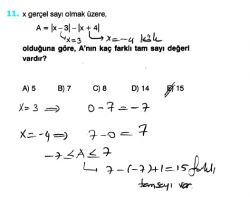 11. x gerçel sayı olmak üzere,
A = |x – 3| – |x + 4|
x=3 x=-4 kök
olduğuna göre, A'nın kaç farklı tam sayı değeri
vardır?
A) 5 B) 7 C) 8 D) 14 E) 15
x=3 ⇒ 0-7=-7
x=-4 ⇒ 7-0=7
-7≤A≤7
↳ 7-(-7)+1=15 farklı
tamsayı var